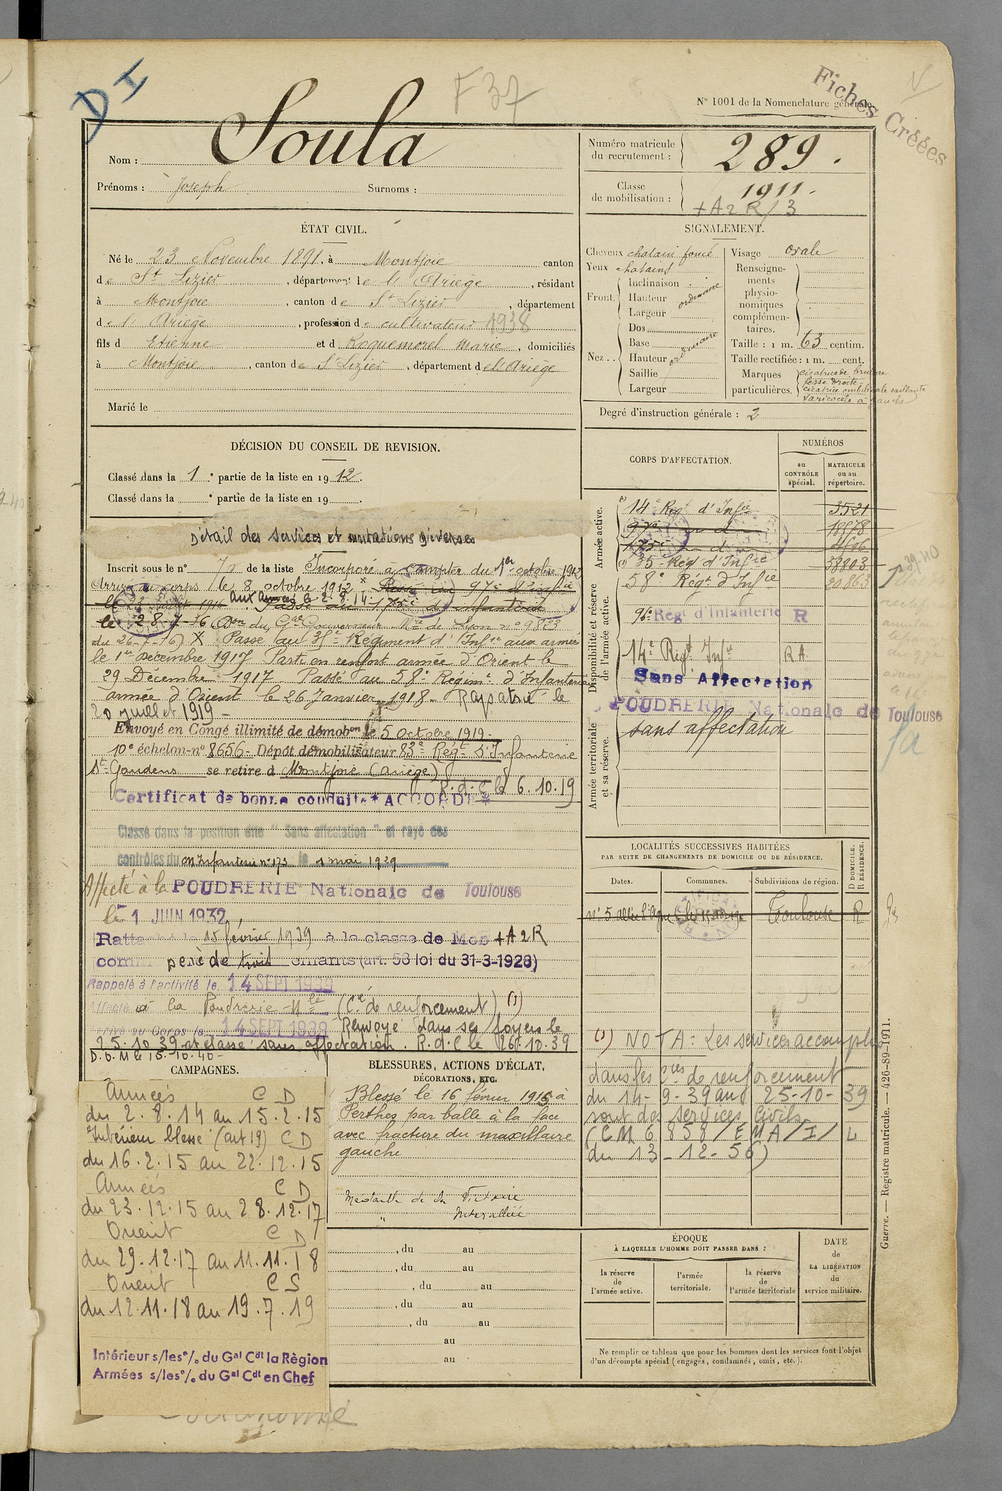 DI
F 37
N° 1001 de la Nomenclature générale.
Fiches Créées
Nom : Soula
Prénoms : Joseph Surnoms :
Numéro matricule du recrutement : 289.
Classe de mobilisation : 1911.
+A2R/3
ÉTAT CIVIL.
Né le 23 Novembre 1891, à Montjoie canton
de St Lizier, département de l'Ariège, résidant
à Montjoie, canton de St Lizier, département
de l'Ariège, profession de cultivateur 1938
fils d Etienne et d Roquemorel Marie, domiciliés
à Montjoie, canton de St Lizier, département de l'Ariège
Marié le
SIGNALEMENT.
Cheveux chatain foncé
Yeux chatains
Front. Inclinaison
Hauteur ordinaire
Largeur
Nez.. Dos
Base
Hauteur ordinaire
Saillie
Largeur
Visage ovale
Renseignements physionomiques complémentaires.
Taille : 1 m. 63 centim.
Taille rectifiée : 1 m. cent.
Marques particulières.
Degré d'instruction générale : 2
DÉCISION DU CONSEIL DE REVISION.
Classé dans la 1e partie de la liste en 1912.
Classé dans la e partie de la liste en 19 .
Détail des services et mutations diverses
Inscrit sous le n° de la liste Incorporé à compter du 1er octobre 1912
Arrivé au corps le 8 octobre 1912
aux armées 2-8-14
le 28-7-16 Don du Gal Gouverneur Mre de Lyon n° 9873
du 26-7-16) X Passé au 35e Régiment d'Infie aux armées
le 1er Décembre 1917 Parti en renfort armée d'Orient le
29 Décembre 1917. Passé au 58e Régimt d'Infanterie
armée d'Orient le 26 Janvier 1918. Rapatrié le
20 juillet 1919
Envoyé en Congé illimité de démobon le 5 Octobre 1919.
10e échelon-n° 8656 - Dépôt démobilisateur 83e Régt d'Infanterie
St Gaudens se retire à Montjoie (Ariège)
R.d.C le 6.10.19
Certificat de bonne conduite "ACCORDÉ"
Classé dans la position dite "Sans affectation" et rayé des
contrôles du CM Infanterie n° 173 le 1 mai 1929
Affecté à la POUDRERIE Nationale de Toulouse
le 1 JUIN 1932,
Ratta 15 février 1939 à la classe de Mob +A2R
comme père de trois enfants (art. 58 loi du 31-3-1928)
Rappelé à l'activité le 14 SEPT 1939
Affecté à la Poudrerie Nle (Cie de renforcement) (1)
Arrivé au Corps le 14 SEPT 1939 Renvoyé dans ses foyers le
25.10.39 et classé sans affectation. R.d.C le 26.10.39
D.G.M le 15-10-40-
CORPS D'AFFECTATION.
NUMÉROS
au CONTRÔLE spécial.
MATRICULE ou au répertoire.
Armée active.
14e Régt d'Infie 3521
97e 18978
175e
35e Régt d'Infie
58e Régt d'Infie 20863
Disponibilité et réserve de l'armée active.
96e Reg d'Infanterie R
14e Régt Infie RA
Sans Affectation
POUDRERIE Nationale de Toulouse
Armée territoriale et sa réserve.
sans affectation
LOCALITÉS SUCCESSIVES HABITÉES
PAR SUITE DE CHANGEMENTS DE DOMICILE OU DE RÉSIDENCE.
Dates. Communes. Subdivisions de région. D DOMICILE. R RÉSIDENCE.
Toulouse R
(1) NOTA : Les services accomplis
dans les Cies de renforcement
du 14-9-39 au 25-10-39
sont des services civils.
(CM 6 858/EMA/I/L
du 13-12-56)
CAMPAGNES.
Armées CD
du 2.8.14 au 15.2.15
Intérieur blessé (art 19) CD
du 16.2.15 au 22.12.15
Armées CD
du 23.12.15 au 28.12.17
Orient CD
du 29.12.17 au 11.11.18
Orient CS
du 12.11.18 au 19.7.19
Intérieur s/les°/. du Gal Cdt la Règion
Armées s/les°/. du Gal Cdt en Chef
BLESSURES, ACTIONS D'ÉCLAT,
DÉCORATIONS, ETC.
Blessé le 16 février 1915 à
Perthes par balle à la face
avec fracture du maxillaire
gauche
Médaille de la Victoire
" Interalliée
, du au
, du au
, du au
, du au
, du au
au
au
ÉPOQUE
À LAQUELLE L'HOMME DOIT PASSER DANS :
la réserve de l'armée active.
l'armée territoriale.
la réserve de l'armée territoriale
DATE de LA LIBÉRATION du service militaire.
Ne remplir ce tableau que pour les hommes dont les services font l'objet
d'un décompte spécial (engagés, condamnés, omis, etc.).
Guerre. — Registre matricule. — 426-89-1911.